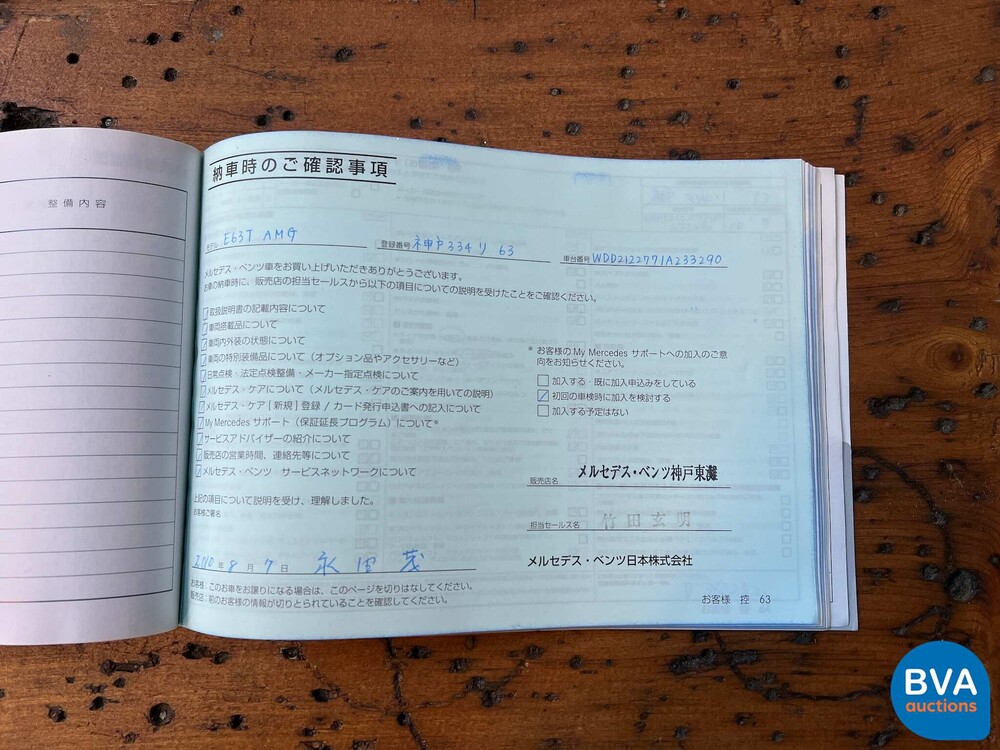 整備内容
納車時のご確認事項
モデル E63T AMG 登録番号 神戸 334 り 63 車台番号 WDD2122771A233290
メルセデス・ベンツ車をお買い上げいただきありがとうございます。
お車の納車時に、販売店の担当セールスから以下の項目についての説明を受けたことをご確認ください。
取扱説明書の記載内容について
車両搭載品について
車両内外装の状態について
車両の特別装備品について（オプション品やアクセサリーなど）
日常点検・法定点検整備・メーカー指定点検について
メルセデス・ケアについて（メルセデス・ケアのご案内を用いての説明）
メルセデス・ケア［新規］登録 / カード発行申込書への記入について
My Mercedes サポート（保証延長プログラム）について*
サービスアドバイザーの紹介について
販売店の営業時間、連絡先等について
メルセデス・ベンツ サービスネットワークについて
上記の項目について説明を受け、理解しました。
お客様ご署名
2010 年 8 月 7 日 永田 茂
お客様：このお車をお譲りになる場合は、このページを切りはなしてください。
販売店：前のお客様の情報が切りとられていることを確認してください。
* お客様のMy Mercedes サポートへの加入のご意
向をお知らせください。
加入する・既に加入申込みをしている
初回の車検時に加入を検討する
加入する予定はない
販売店名 メルセデス・ベンツ神戸東灘
担当セールス名 竹田玄明
メルセデス・ベンツ日本株式会社
お客様 控 63
BVA
auctions